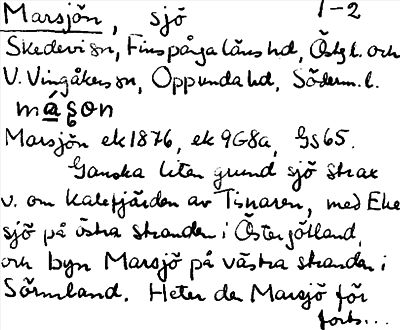 Marsjön, sjö 1-2
Skedevi sn, Finspånga läns hd, Östg l. och
V. Vingåkers sn, Oppunda hd, Söderm. l.
másọn
Marsjön ek 1876, ek 9G8a, GS65.
Ganska liten grund sjö strax
v. om Kalvfjärden av Tisnaren, med Eke
sjö på östra stranden i Östergötland,
och byn Marsjö på västra stranden i
Sörmland. Heter de Marsjö för
forts...